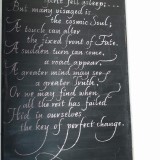 fell asleep;...
But many visaged is
the cosmic Soul;
A touch can alter
the fixed front of Fate.
A sudden turn can come,
a road appear.
A greater mind may see
a greater Truth,
Or we may find when
all the rest has failed
Hid in ourselves
the key of perfect change.